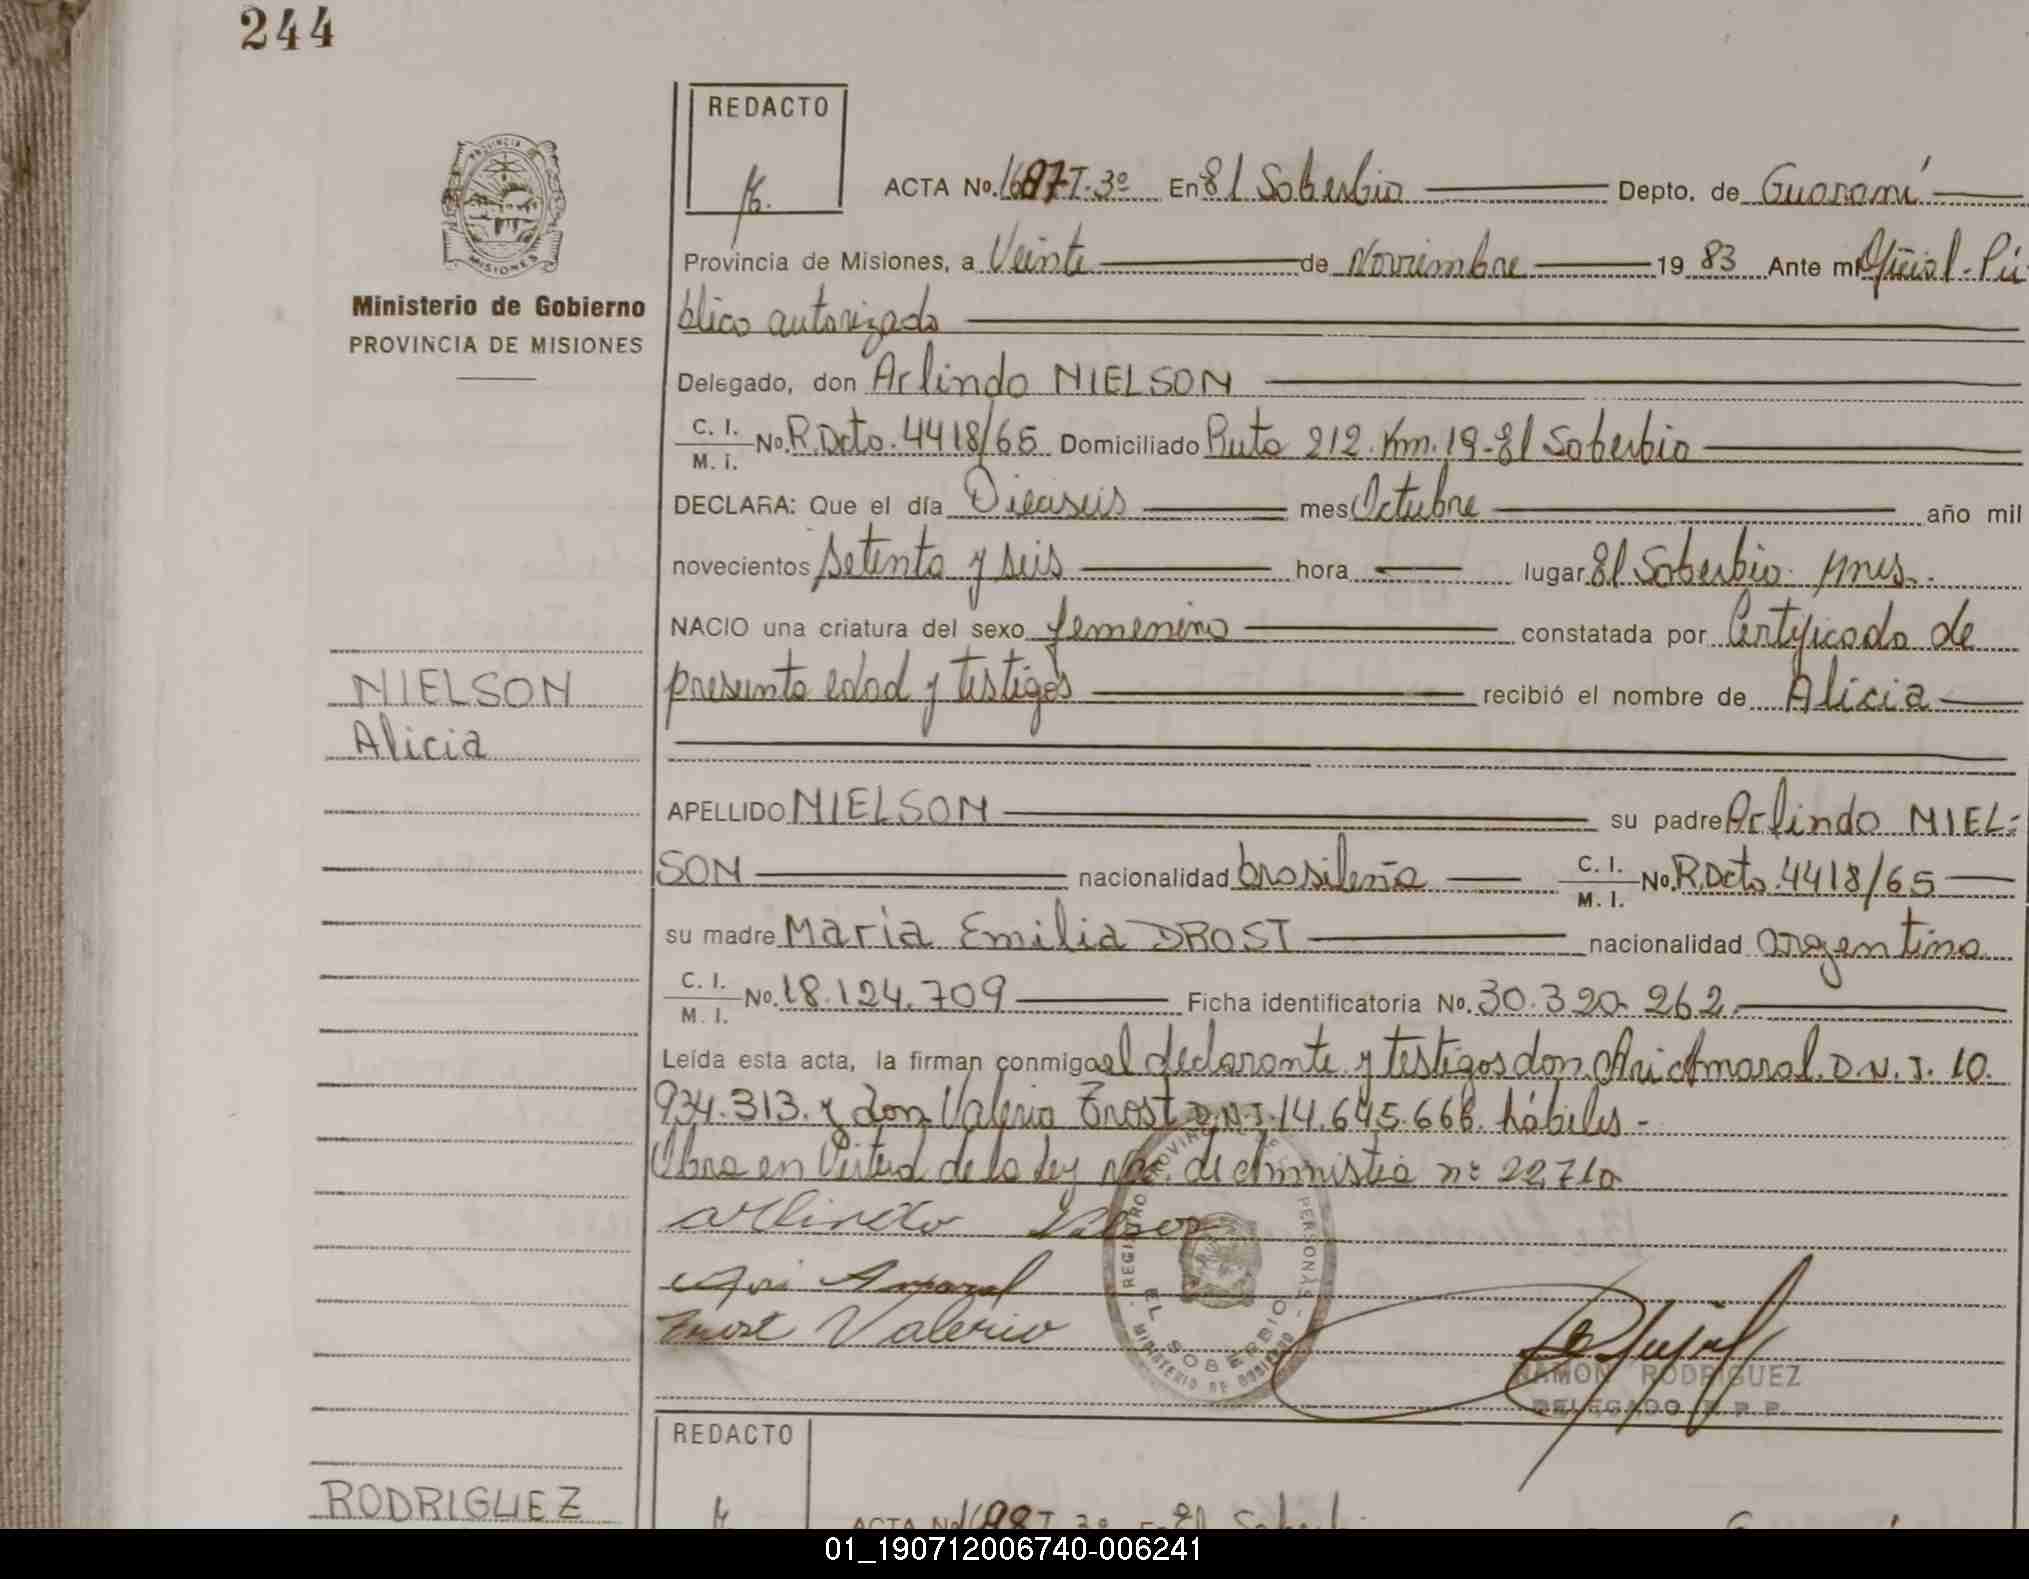 244
REDACTO
ACTA No. 1687-T-3º En El Soberbio Depto. de Guaraní
PROVINCIA DE
MISIONES
Provincia de Misiones, a Veinte de Noviembre 19 83 Ante mi Oficial-Pú
Ministerio de Gobierno
PROVINCIA DE MISIONES
blico autorizado
Delegado, don Arlindo NIELSON
C. I.
M. I. No. R.Dcto. 4418/65 Domiciliado Ruta 212. Km. 19-El Soberbio
DECLARA: Que el día Dieciseis mes Octubre año mil
novecientos setenta y seis hora lugar El Soberbio Mnes.
NACIO una criatura del sexo femenino constatada por Certificado de
NIELSON
presunta edad y testigos recibió el nombre de Alicia
Alicia
APELLIDO NIELSON su padre Arlindo NIEL-
SON nacionalidad brasileña C. I. M. I. No. R.Dcto. 4418/65
su madre María Emilia DROST nacionalidad argentina
C. I.
M. I. No. 18.124.709 Ficha identificatoria No. 30.320.262
Leída esta acta, la firman conmigo el declarante y testigos don Ari Amaral. D.N.I. 10.
934.313. y don Valerio Frost D.N.I. 14.645.668 hábiles-
Obra en Virtud de la Ley Nac. de Amnistia nº 22710
Arlindo
Ari Amaral
Frost Valerio
REGISTRO PROVINCIAL DE PERSONAS
EL SOBERBIO
MINISTERIO DE GOBIERNO
RAMON RODRIGUEZ
DELEGADO R.P.P.
REDACTO
RODRIGUEZ
ACTA No. 1688 T. 3º En El Soberbi
01_190712006740-006241